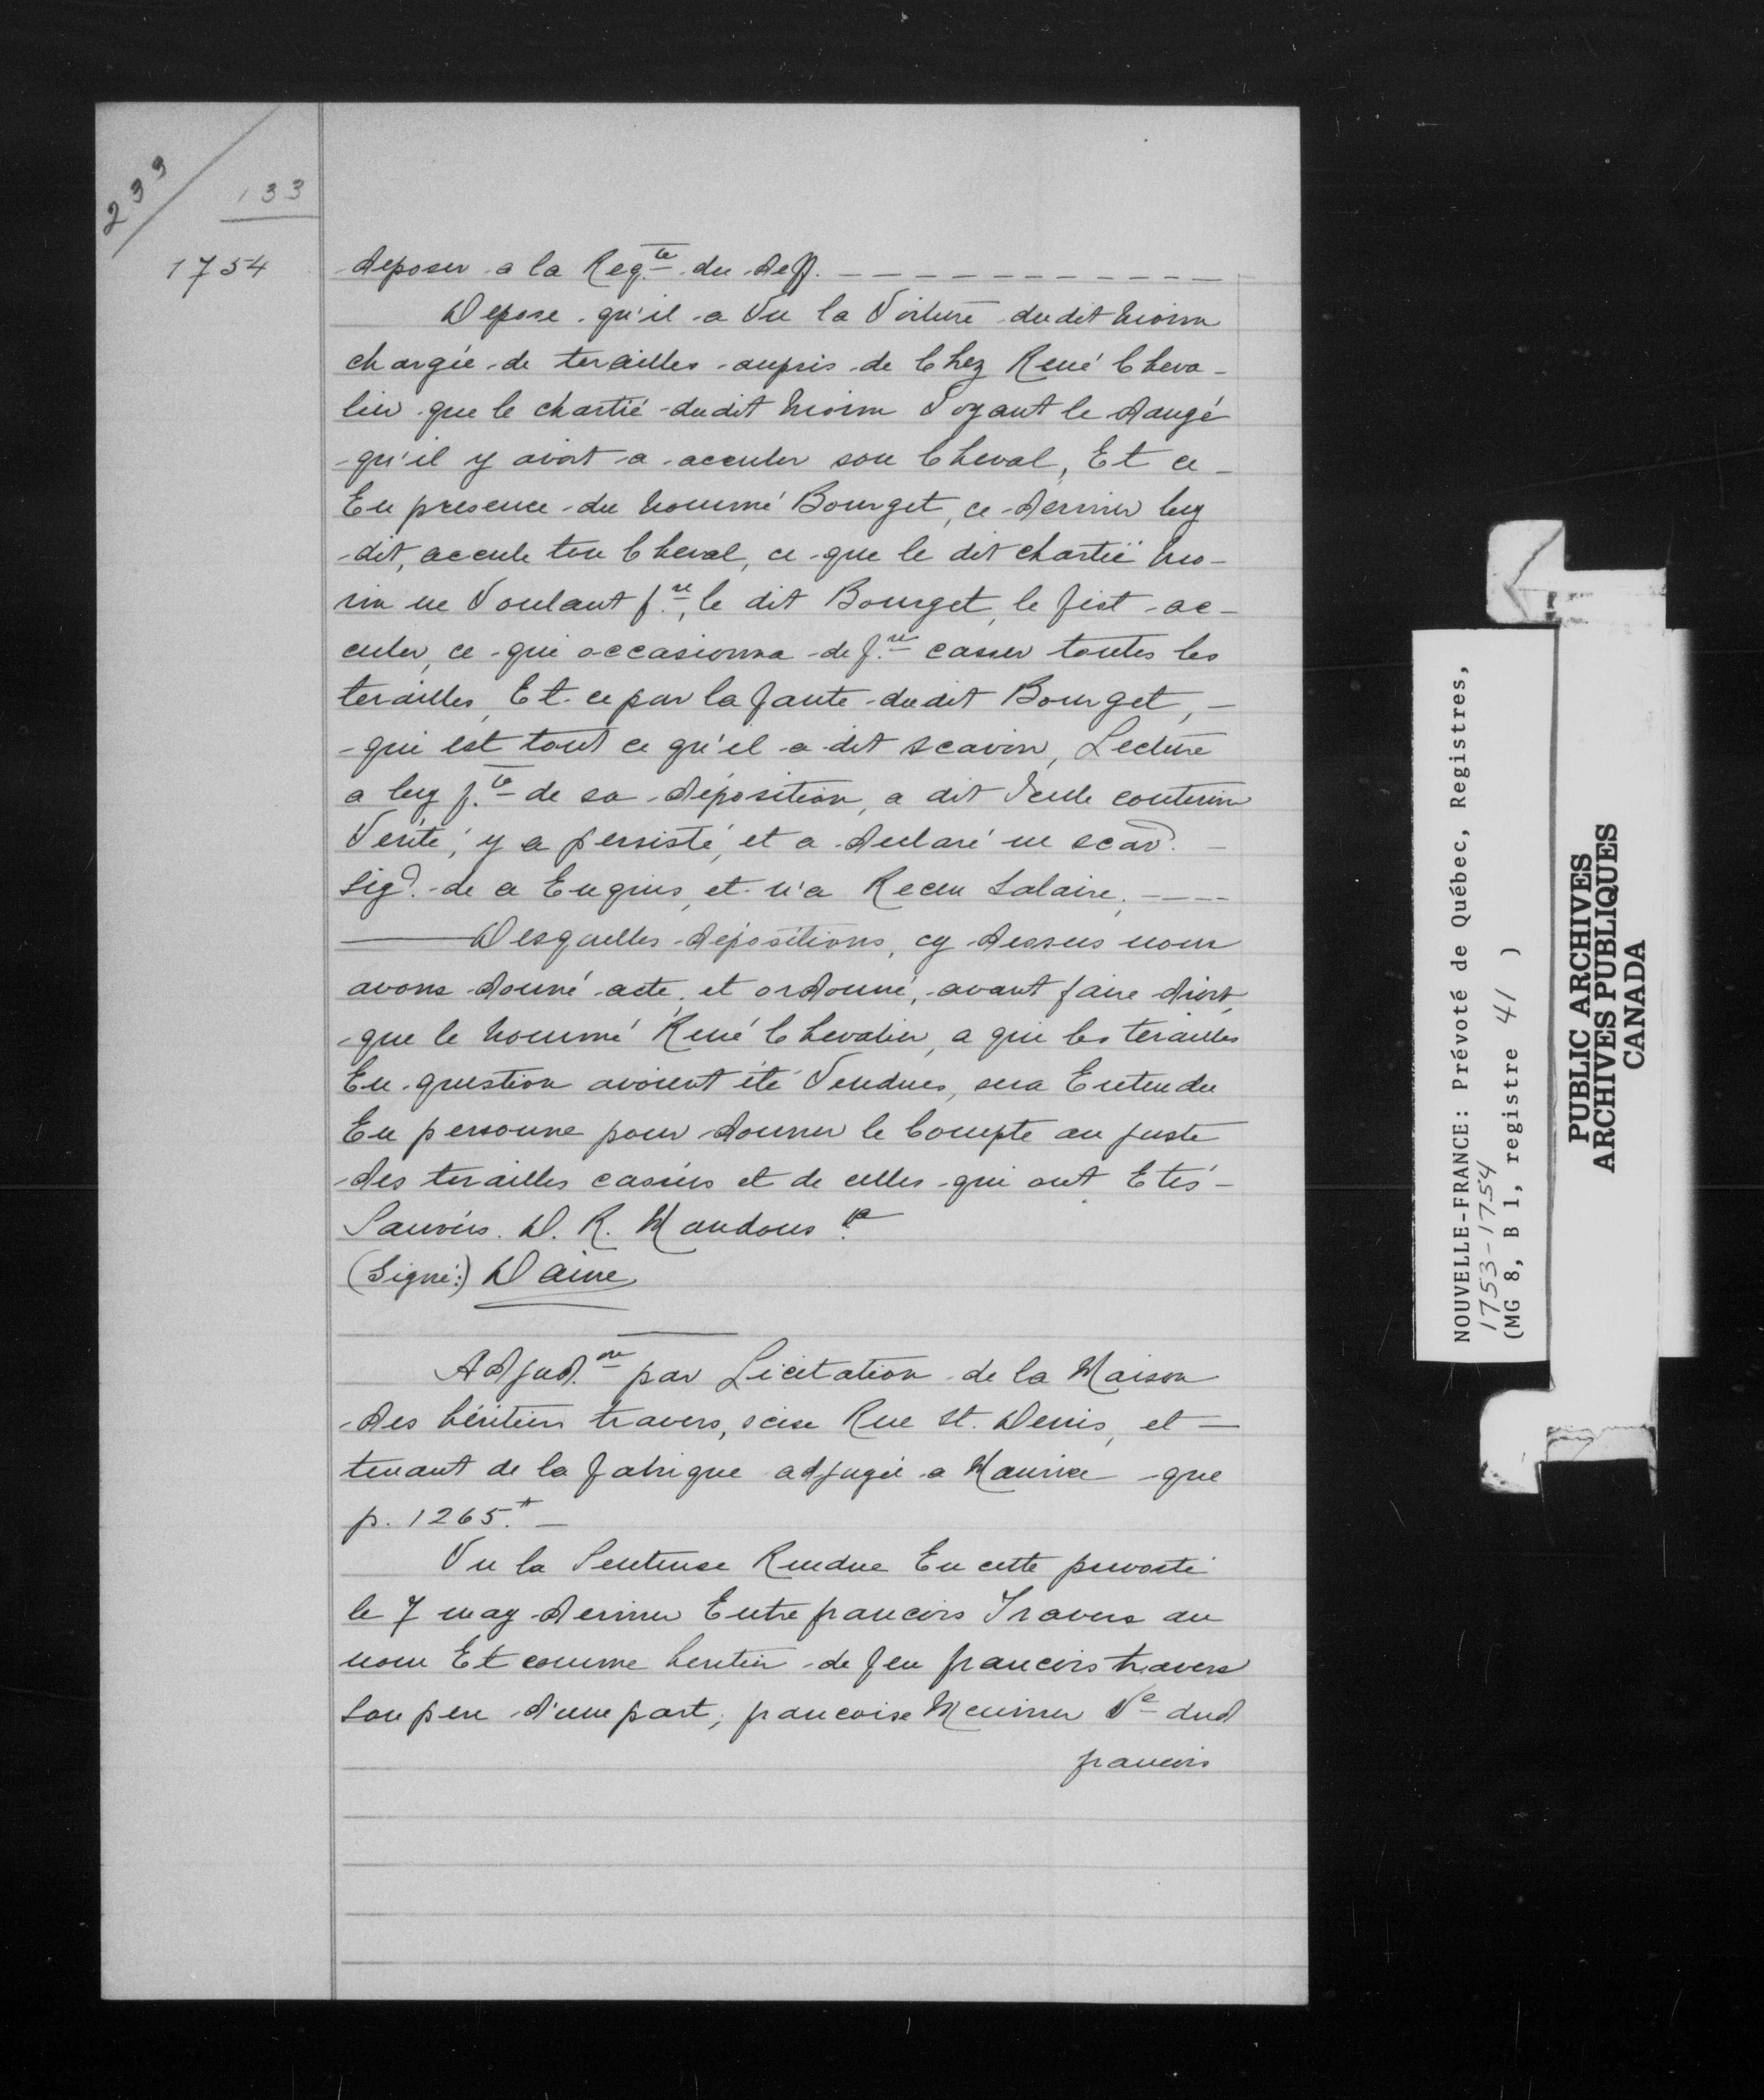 233
133
1754
deposer a la Reqte du deff.
Depose qu'il a Vu la Voiture dudit Morin
chargée de terailles aupris de Chez René Cheva-
lier que le chartié dudit Morin Voyant le dangé
qu'il y avoit a acculer son Cheval, Et ce -
En presence du nommé Bourget, ce dernier luy
dit, accule ton Cheval, ce que le dit chartié Mo-
rin ne Voulant fre, le dit Bourget, le fist ac-
culer, ce qui occasionna de fre casser toutes les
terailles, Et ce par la faute dudit Bourget, -
qui est tout ce qu'il a dit scavoir, Lecture
a luy fte de sa déposition, a dit Icelle contenir
Verité, y a persisté, et a declaré ne scav. -
sig. de ce Enquis, et n'a Receu Salaire,
Desquelles dépositions, cy dessus nous
avons donné acte et ordonné, avant faire droit,
que le nommé René Chevalier, a qui les terailles
En question avoient été Vendues, sera Entendu
En personne pour donner le Compte au juste
des terailles cassées et de celles qui ont Etés -
Sauvées. D. R. Mandons &a
(Signé:) Daine
Adjudon par Licitation de la Maison
des héritiers travers, scise Rue St. Denis, et -
tenant de la fabrique adjugée a Maurice que
p. 1265.# -
Vu la Sentense Rendue En cette prevosté
le 7 may dernier Entre francois Travers au
nom Et comme heritier de feu francois travers
son pere d'une part, francoise Meunier Ve dud
francois
NOUVELLE-FRANCE: Prévoté de Québec, Registres,
1753-1754
(MG 8, B 1, registre 41 )
PUBLIC ARCHIVES
ARCHIVES PUBLIQUES
CANADA